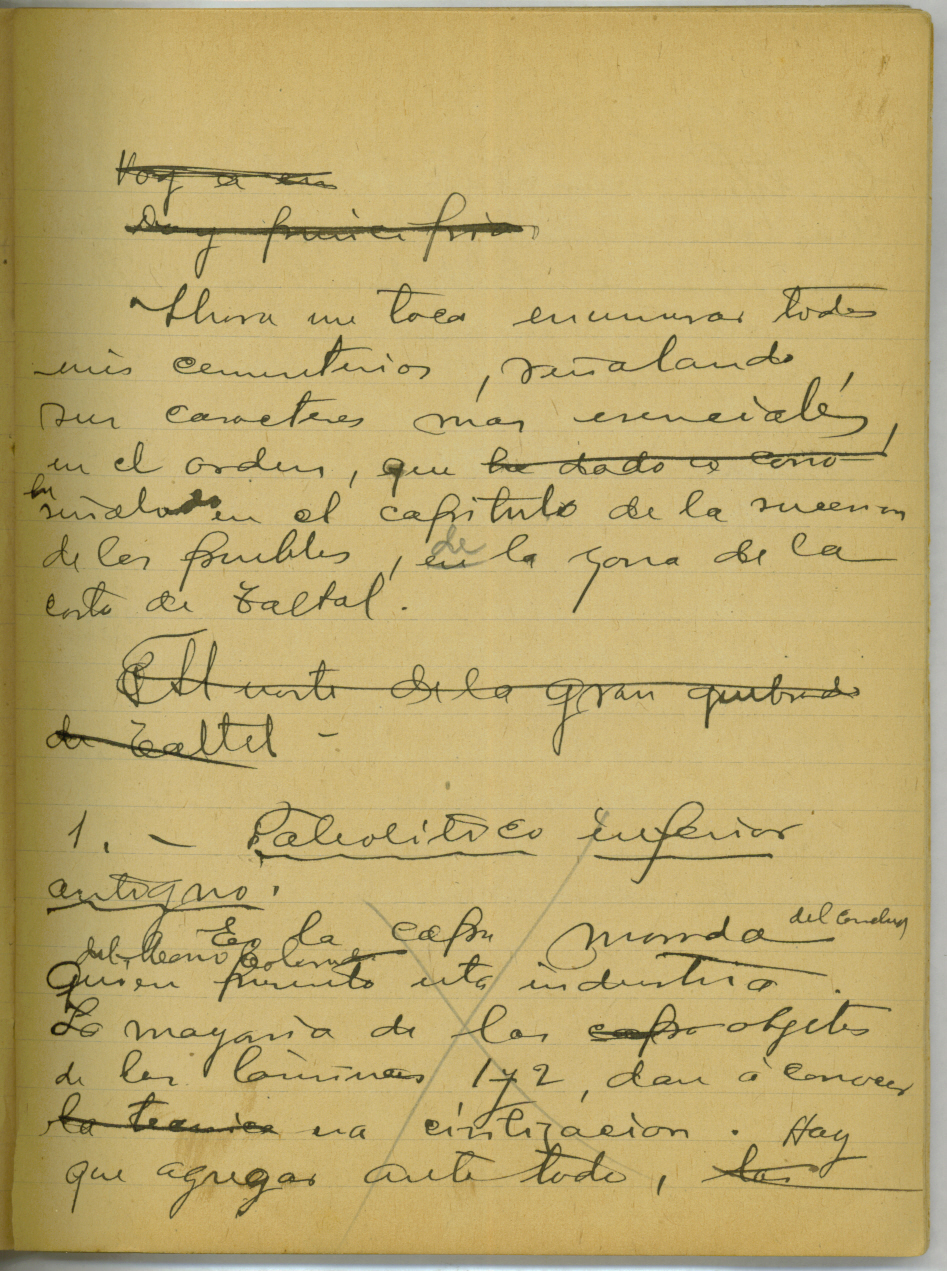 Voy a en
Doy principio
Ahora me toca enumerar todos
mis cementerios, señalando,
sus caracteres mas esenciales,
en el orden, que he dado a cono-
he señalado en el capitulo de la sucesion
de los pueblos, en de la zona de la
costa de Taltal.
Al norte de la gran quebrada
de Taltal -
1. - Paleolitico inferior
antiguo.
Es la capa morada del Conchal
del Morro Colorado
Quien presento esta industria.
La mayoria de los capa objetos
de las láminas 1 y 2, dan á conocer
la tecnica esa civilizacion. Hay
que agregar ante todo, las